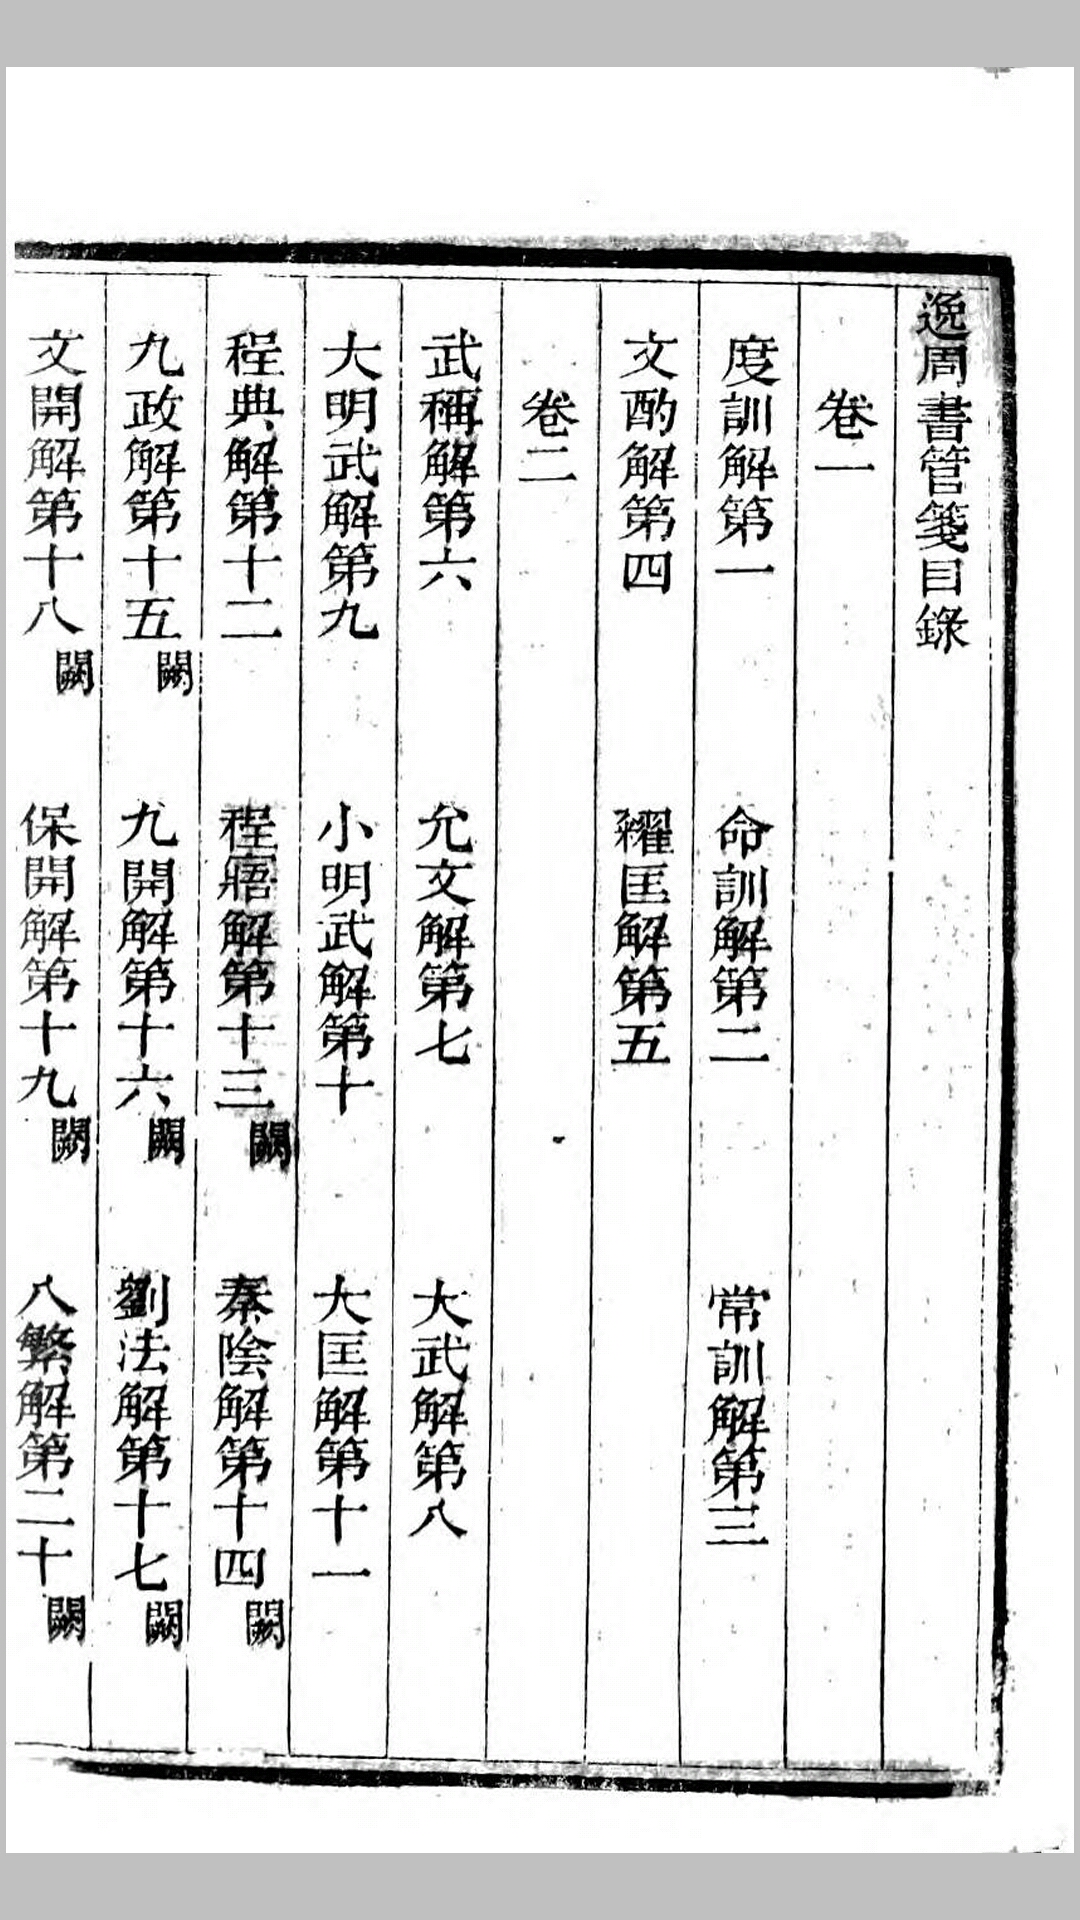 逸周書管箋目錄
卷一
度訓解第一 命訓解第二 常訓解第三
文酌解第四 糴匡解第五
卷二
武稱解第六 允文解第七 大武解第八
大明武解第九 小明武解第十 大匡解第十一
程典解第十二 程寤解第十三闕 秦陰解第十四闕
九政解第十五闕 九開解第十六闕 劉法解第十七闕
文開解第十八闕 保開解第十九闕 八繁解第二十闕